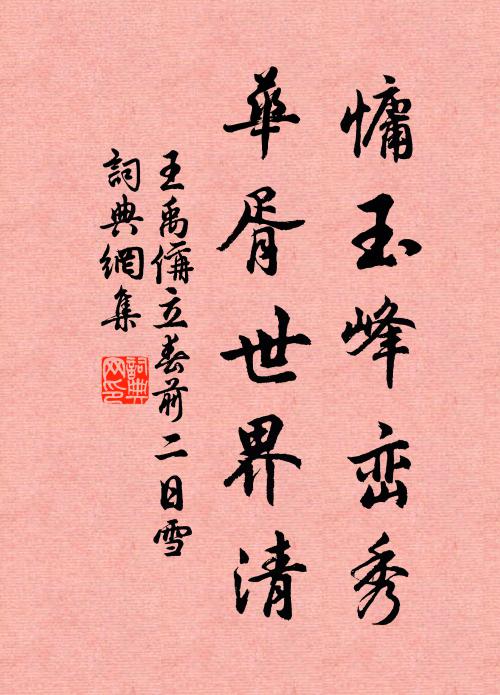 慵玉峰峦秀
華胥世界清
王禹偁立春前二日雪
詞典網集
詞典网印